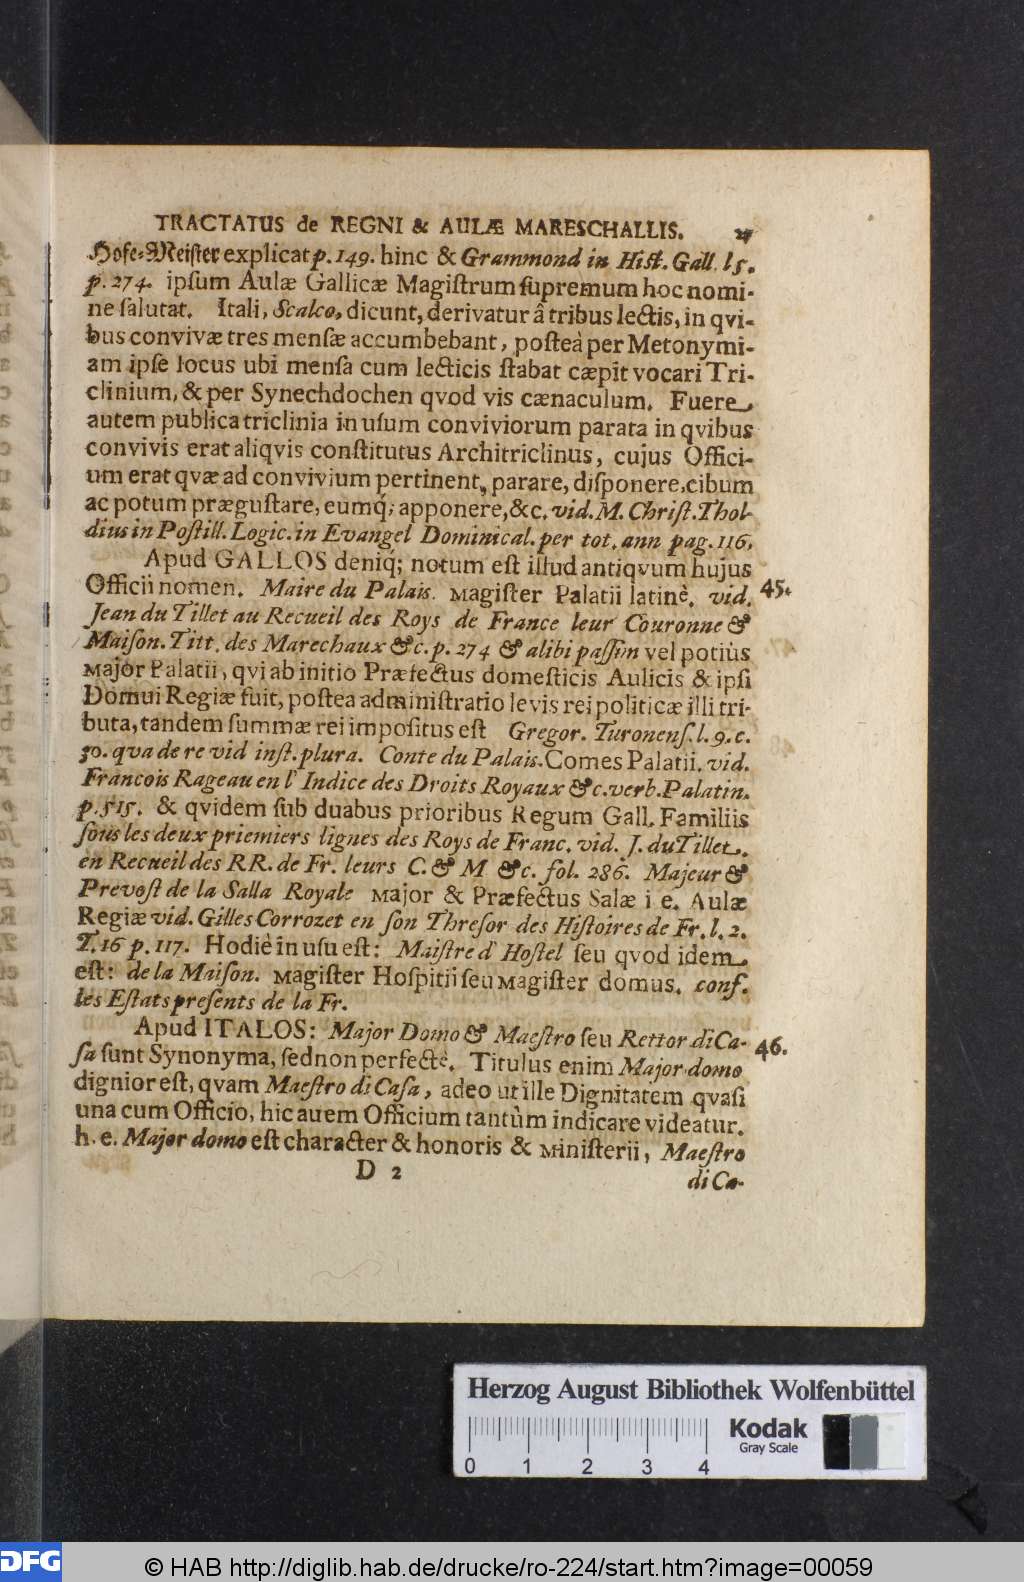 TRACTATUS de REGNI & AULÆ MARESCHALLIS. 27
Hofe-Meister explicat p. 149. hinc & Grammond in Hist. Gall. l 5.
p. 274. ipſum Aulæ Gallicæ Magiſtrum ſupremum hoc nomi-
ne ſalutat. Itali, Scalco, dicunt, derivatur â tribus lectis, in qvi-
bus convivæ tres menſæ accumbebant, poſteà per Metonymi-
am ipſe locus ubi menſa cum lecticis ſtabat cæpit vocari Tri-
clinium, & per Synechdochen qvod vis cænaculum. Fuere
autem publica triclinia in uſum conviviorum parata in qvibus
convivis erat aliqvis conſtitutus Architriclinus, cujus Offici-
um erat qvæ ad convivium pertinent, parare, diſponere, cibum
ac potum præguſtare, eumq́; apponere, &c. vid. M. Chriſt. Thol-
dius in Poſtill. Logic. in Evangel Dominical. per tot. ann pag. 116.
Apud GALLOS deniq́; notum eſt illud antiqvum hujus
Officii nomen. Maire du Palais. Magiſter Palatii latinè. vid. 45.
Jean du Tillet au Recueil des Roys de France leur Couronne &
Maiſon. Titt. des Marechaux &c. p. 274 & alibi paſſim vel potiùs
Major Palatii, qvi ab initio Præfectus domeſticis Aulicis & ipſi
Domui Regiæ fuit, poſtea adminiſtratio levis rei politicæ illi tri-
buta, tandem ſummæ rei impoſitus eſt Gregor. Turonenſ. l. 9. c.
30. qva de re vid inſt. plura. Conte du Palais. Comes Palatii. vid.
Francois Rageau en l' Indice des Droits Royaux &c. verb. Palatin.
p. 515. & qvidem ſub duabus prioribus Regum Gall. Familiis
ſous les deux priemiers lignes des Roys de Franc. vid. J. du Tillet.
en Recueil des RR. de Fr. leurs C. & M &c. fol. 286. Majeur &
Prevoſt de la Salla Royale Major & Præfectus Salæ i e. Aulæ
Regiæ vid. Gilles Corrozet en ſon Threſor des Hiſtoires de Fr. l. 2.
T. 16 p. 117. Hodiè in uſu eſt: Maiſtre d' Hoſtel ſeu qvod idem
eſt: de la Maiſon. Magiſter Hoſpitii ſeu Magiſter domus. conf.
les Eſtats preſents de la Fr.
Apud ITALOS: Major Domo & Maeſtro ſeu Rettor di Ca- 46.
ſa ſunt Synonyma, ſed non perfectè. Titulus enim Major domo
dignior eſt, qvam Maeſtro di Caſa, adeo ut ille Dignitatem qvaſi
una cum Officio, hic auem Officium tantùm indicare videatur.
h. e. Major domo eſt character & honoris & Miniſterii, Maeſtro
D 2
di Ca-
Herzog August Bibliothek Wolfenbüttel
Kodak
Gray Scale
0 1 2 3 4
DFG
© HAB http://diglib.hab.de/drucke/ro-224/start.htm?image=00059